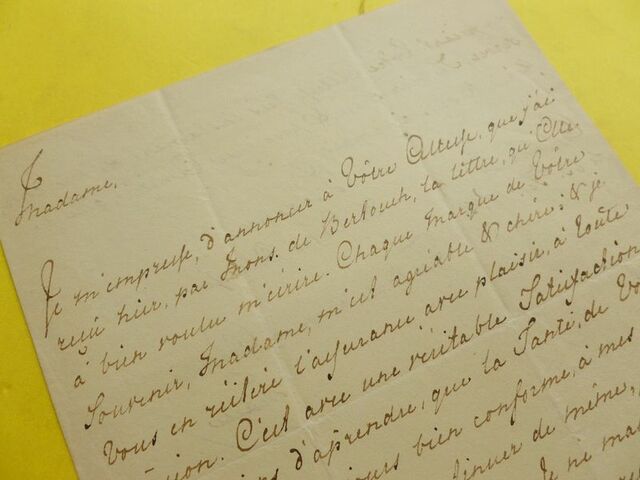 Madame,
Je m'empresse, d'annoncer à Vôtre Altesse, que j'ai
reçû hier, par Mons. de Bertouch, la lettre, qu'Elle
à bien voulu m'ecrire. Chaque marque de Vôtre
Souvenir, Madame, m'est agréable & chére; & je
Vous en réïtére l'assurance avec plaisir, à toute
C'est avec une véritable Satisfaction
d'aprendre, que la Santé, de
bien conforme, à mes
de même,
Je ne